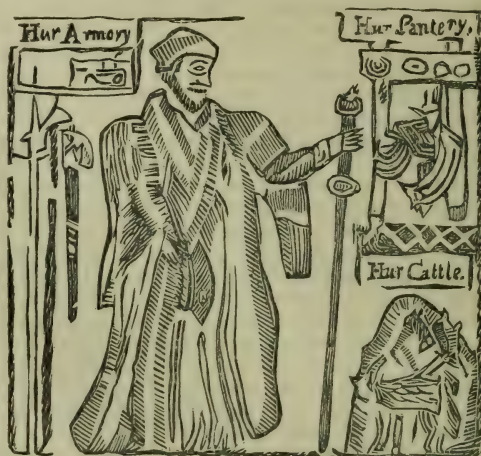 Hur Armory
Hur Pantery.
Hur Cattle.